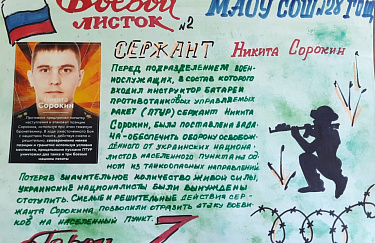 Боевой
ЛИСТОК №2
МАОУ СОШ №28 ГОЩ
СЕРЖАНТ Никита Сорокин
Сорокин
Перед подразделением воен-
нослужащих, в состав которого
входил инструктор батареи
противотанковых управляемых
ракет (ПТУР) сержант Никита
Сорокин, была поставлена зада-
ча - обеспечить оборону освобож-
дённого от украинских национа-
листов населённого пункта на од-
ном из танкоопасных направлений.
Потеряв значительное количество живой силы,
украинские националисты были вынуждены
отступить. Смелые и решительные действия сер-
жанта Сорокина позволили отразить атаку боеви-
ков на населённый пункт.
Герои Z